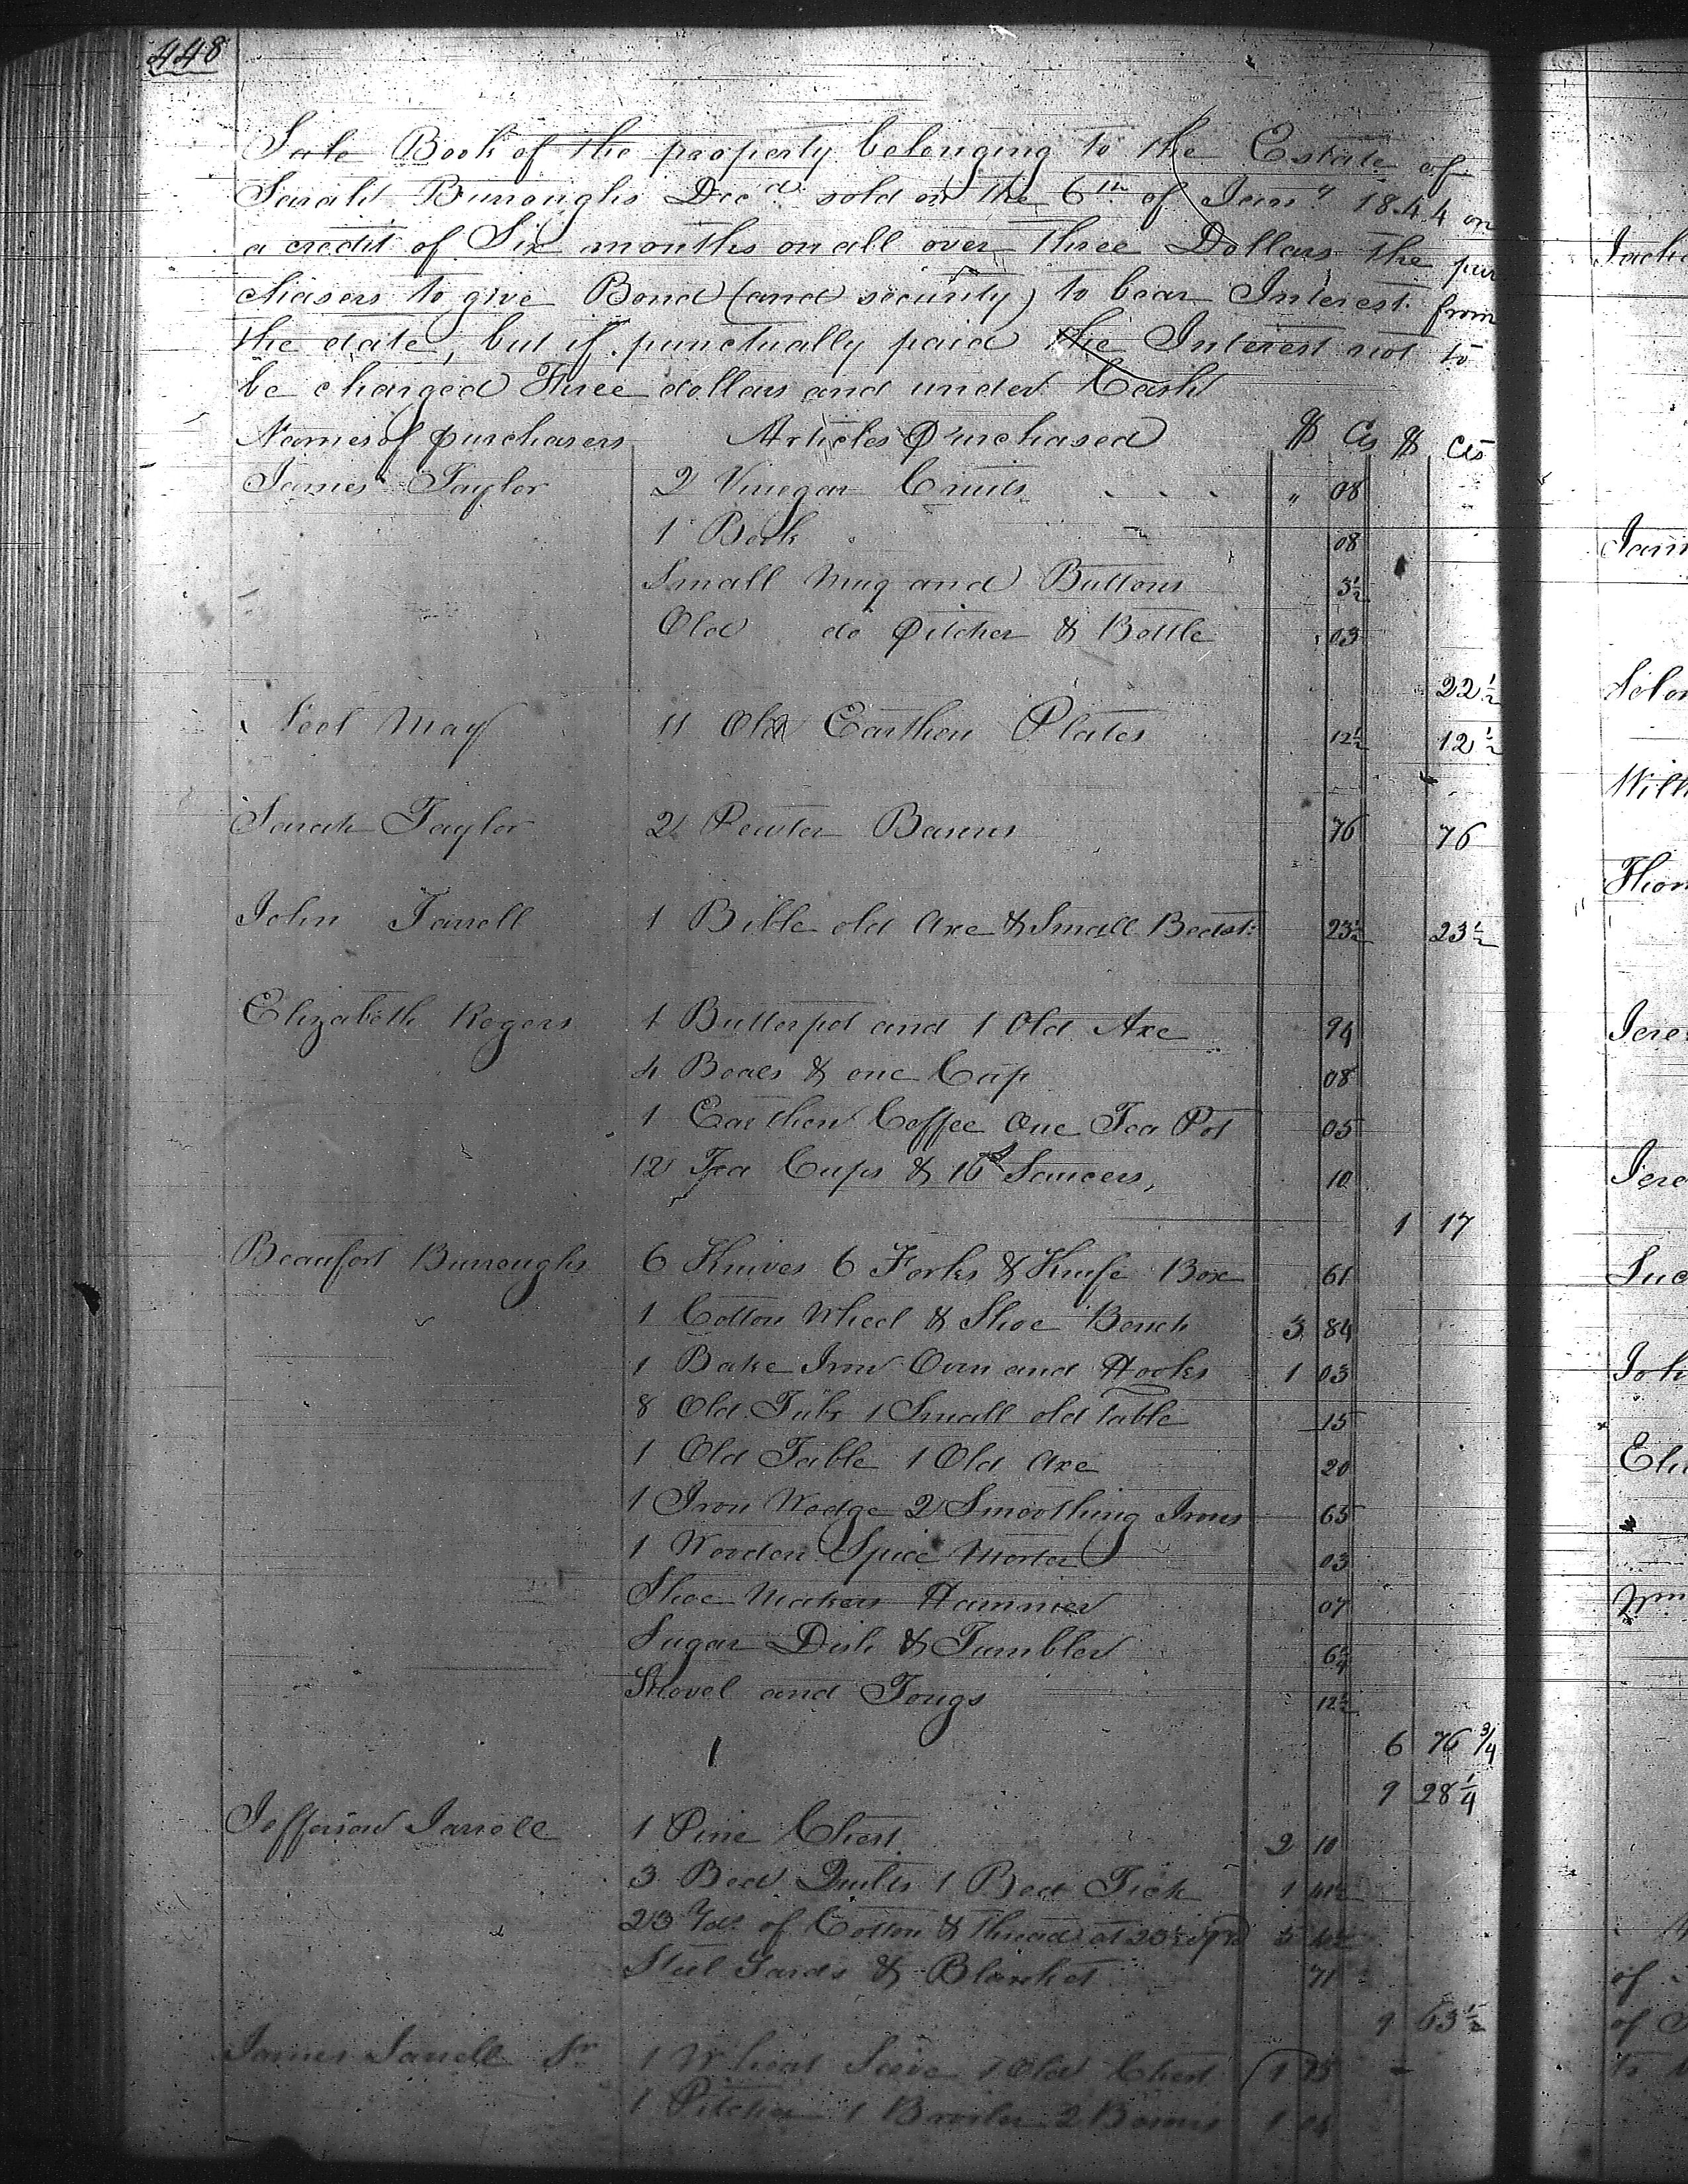 448
Sale Book of the property belonging to the Estate of
Sarah Burroughs Decd sold on the 6th of Jany 1844 on
a credit of Six months on all over three Dollars the pur
chasers to give Bond (and security) to bear Interest from
the date, but if punctually paid the Interest not to
be charged Three dollars and under Cash
Names of purchasers Articles Purchased $ Cts $ Cts
James Taylor 2 Vinegar Cruits " 08
1 Book 08
Small Mug and Buttons 3½
Old do Pitcher & Bottle 03
22½
May 11 Old Earthen Plates 12½ 12½
Sarah Taylor 2 Pewter Basins 76 76
John Jarrell 1 Bible old Axe & Small Bedst: 23½ 23½
Elizabeth Rogers 1 Butterpot and 1 Old Axe 94
4 & one Cup 08
1 Earthen Coffee One Tea Pot 05
12 Tea Cups & 16 Saucers, 10
1 17
Beaufort Burroughs 6 Knives 6 Forks & Knife Box 61
1 Cotton Wheel & Shoe Bench 3 84
1 Bake Iron Oven and Hooks 1 03
8 Old Tubs 1 Small old table 15
1 Old Table 1 Old Axe 20
1 Iron Wedge 2 Smoothing Irons 65
1 Wooden Spice Morter 03
Shoe Makers Hammer 07
Sugar Dish & Tumbler 6¾
Shovel and Tongs 12½
6 76¾
9 28¼
Jefferson Jarrell 1 Pine Chest 2 10
3 Bed Quilts 1 Bed Tick 1 41½
23 Yds of Cotton & thread at 5
Steel Yards & Blanket 71
9 63½
James Jarrell Sr 1 Wheat Sieve 1 Old Chest 1
1 Pitcher 1 Broiler 2 1 04